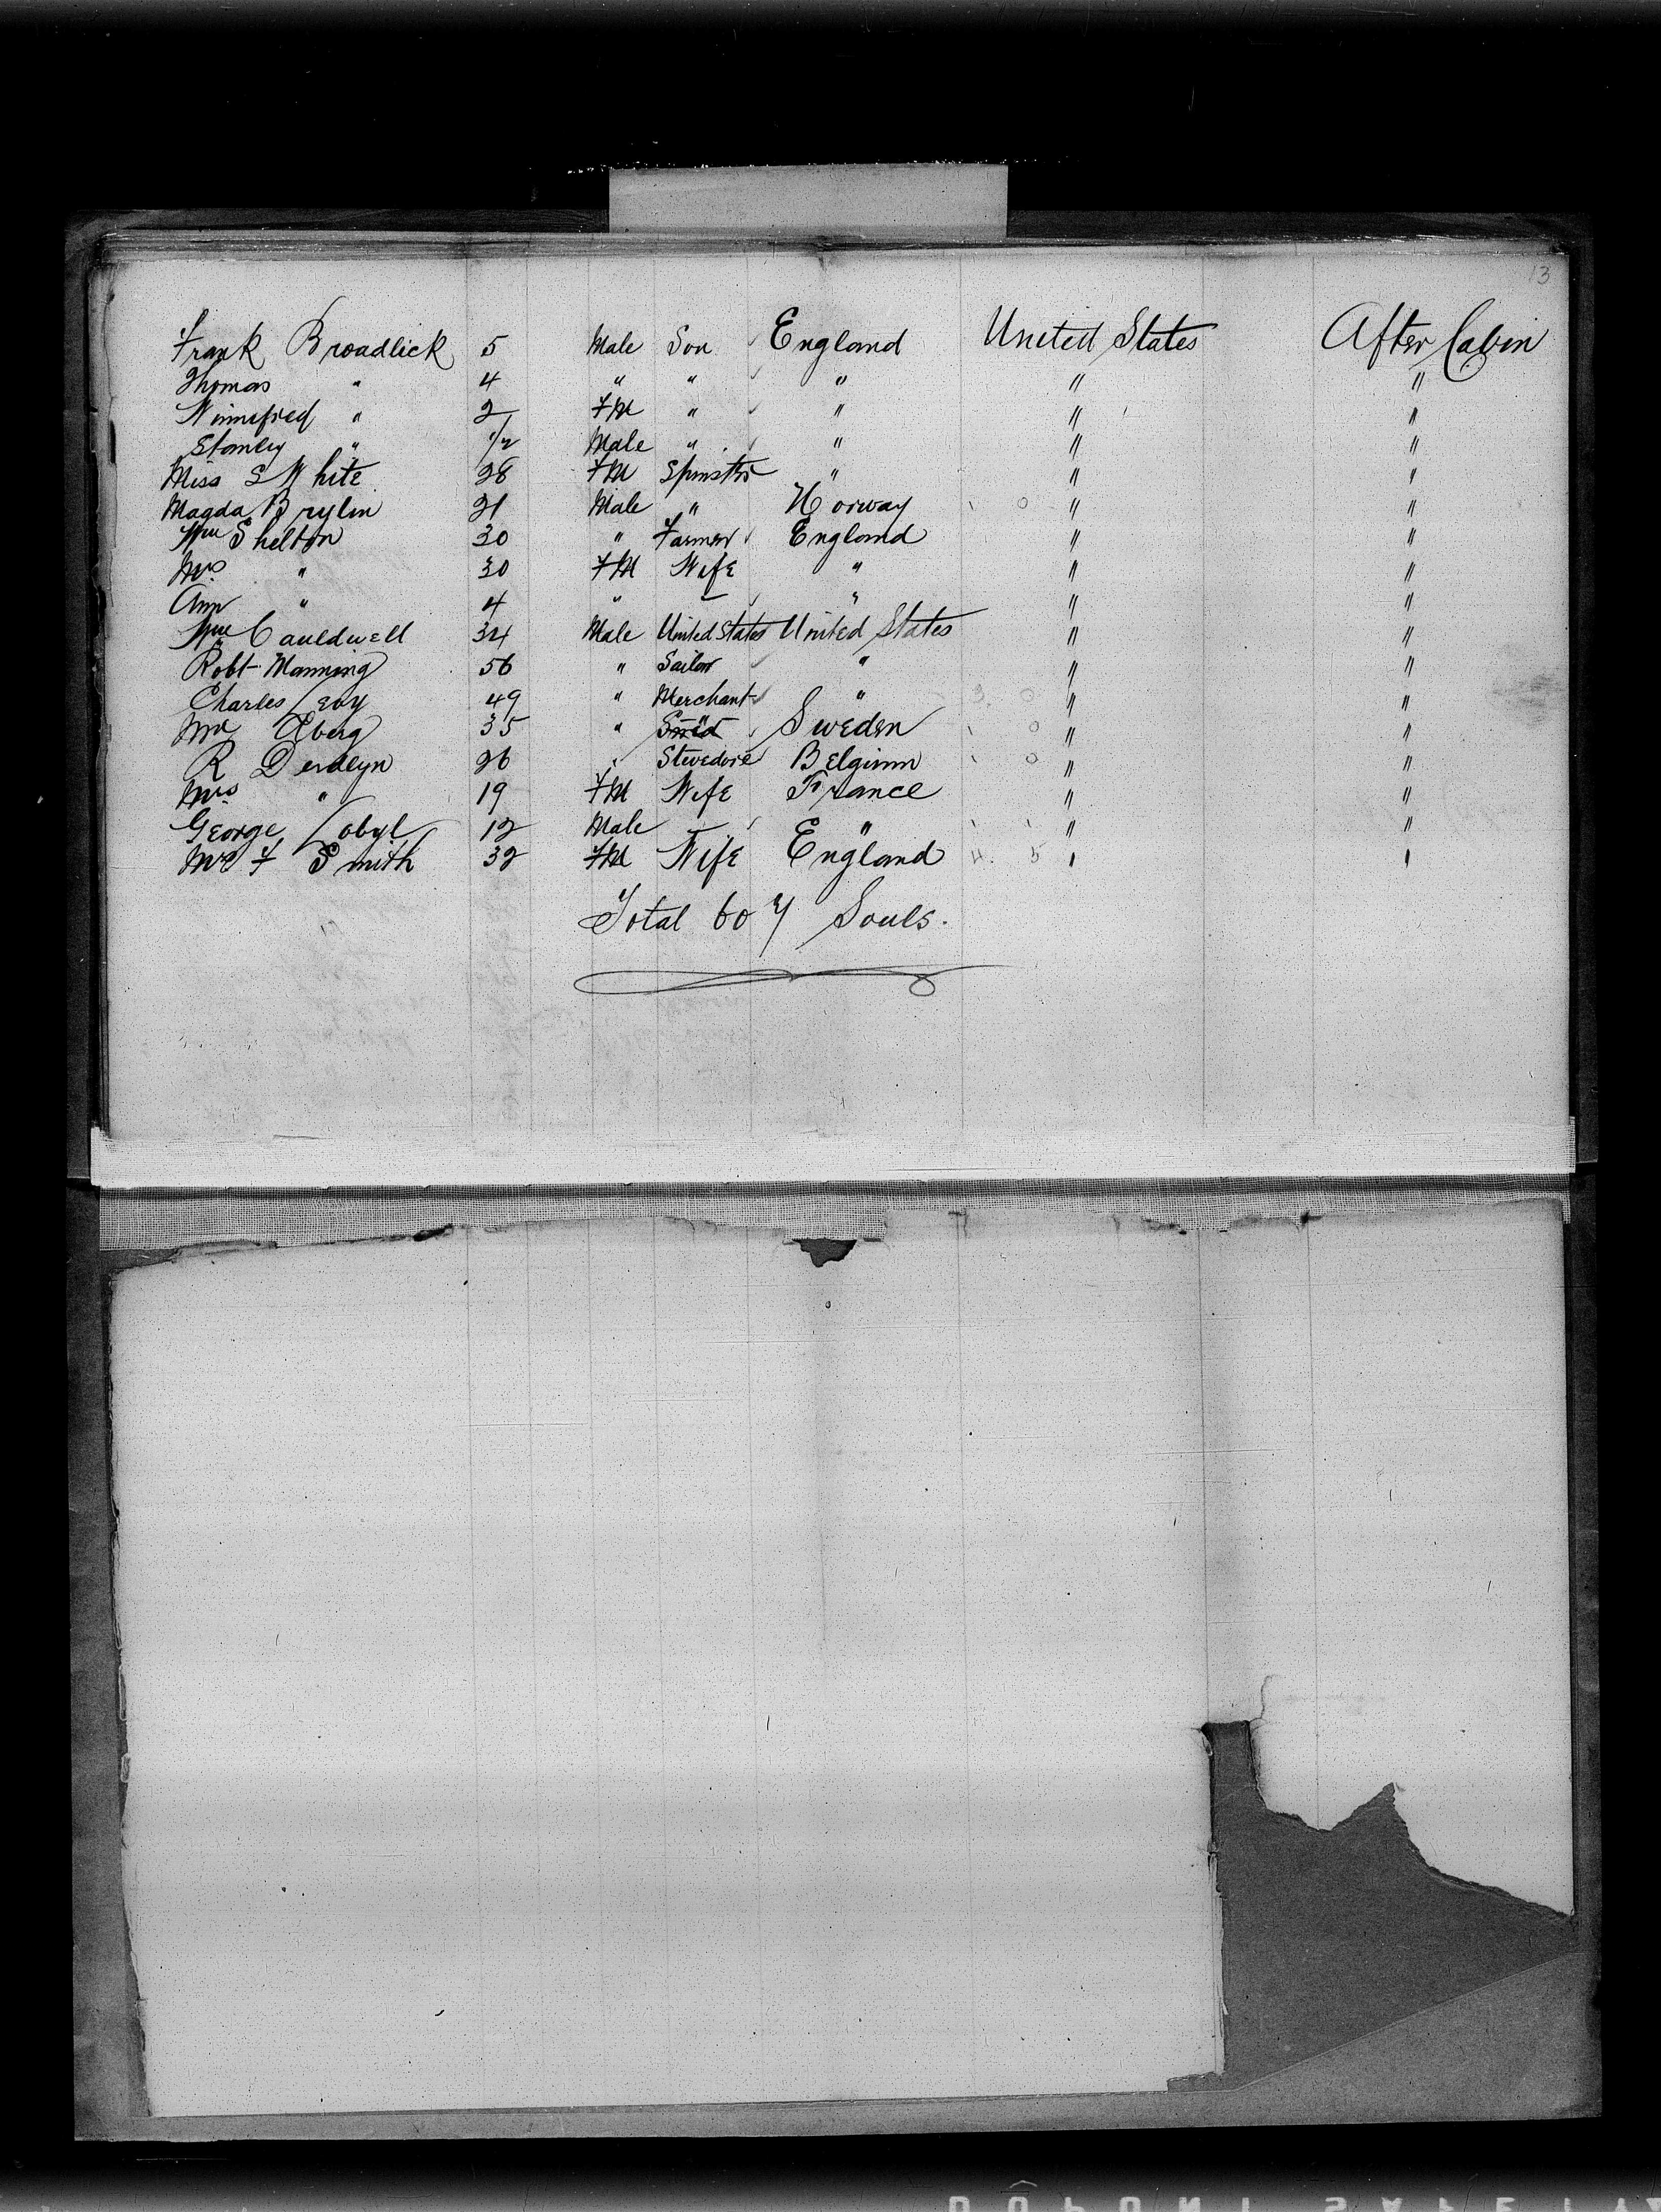 13
Frank Broadlick 5 Male Son England United States After Cabin
Thomas " 4 " " " " "
Winnefred " 2 FM " " " "
Stanley " 1/2 Male " " " "
Miss S White 28 FM Spinster " " "
Magda Brylin 21 Male " Norway " "
Wm Shelton 30 " Farmer England " "
Mrs " 30 FM Wife " " "
Ann " 4 " " " "
Wm Cauldwell 34 Male United States United States " "
Robt Manning 56 " Sailor " " "
Charles Levy 49 " Merchant " " "
Mr Aberg 35 " " Sweden " "
R Derdeyn 26 " Stevedore Belgium " "
Mrs " 19 FM Wife France " "
George 12 Male " " "
Mrs F Smith 32 FM Wife England " "
Total 607 Souls.